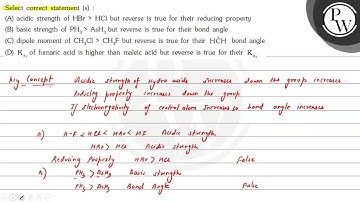 Select correct statement (s) :
(A) acidic strength of HBr > HCl but reverse is true for their reducing property
(B) basic strength of PH₃ > AsH₃ but reverse is true for their bond angle
(C) dipole moment of CH₃Cl > CH₃F but reverse is true for their HĈH bond angle
(D) Kₐ₁ of fumaric acid is higher than maleic acid but reverse is true for their Kₐ₂
Key Concept Acidic strength of Hydra acids increases down the group increases
Reducing property increases down the group
If Electronegativity of central atom Increases so bond angle increases
A) H-F < HCl < HBr < HI Acidic strength
HBr > HCl Acidic strength
Reducing Property HBr > HCl False
B) PH₃ > AsH₃ Basic strength
PH₃ > AsH₃ Bond Angle False